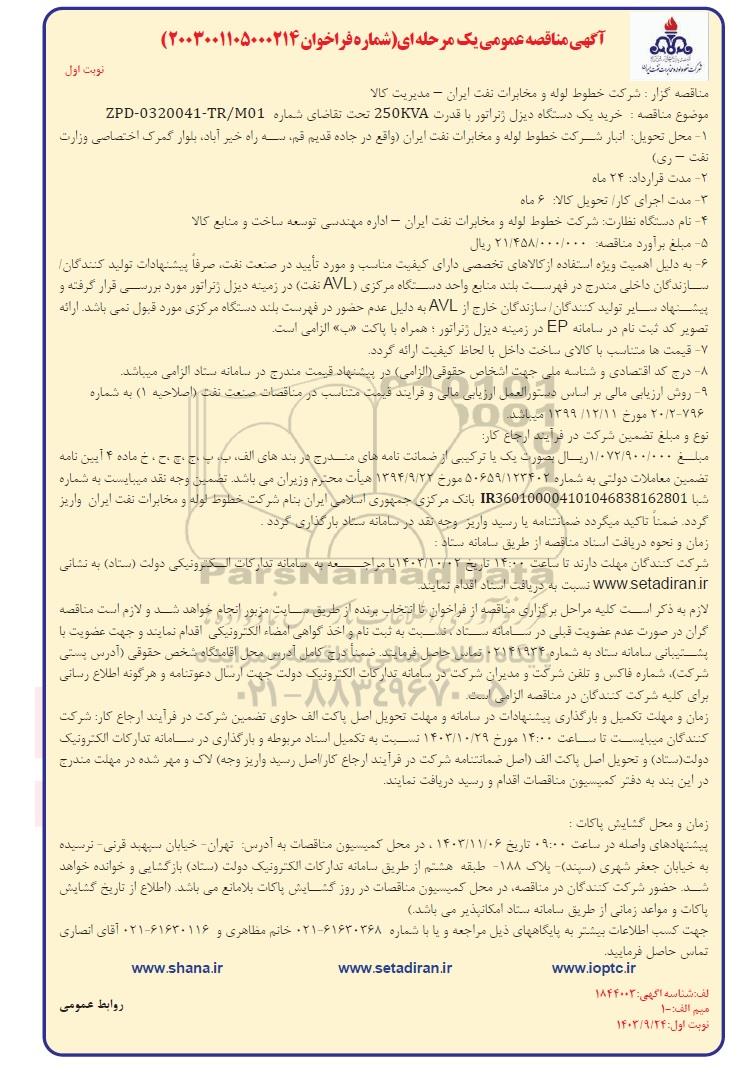 آگهی مناقصه عمومی یک مرحله ای(شماره فراخوان ۲۰۰۳۰۰۱۱۰۵۰۰۰۲۱۴)
نوبت اول
مناقصه گزار : شرکت خطوط لوله و مخابرات نفت ایران – مدیریت کالا
موضوع مناقصه : خرید یک دستگاه دیزل ژنراتور با قدرت 250KVA تحت تقاضای شماره ZPD-0320041-TR/M01
۱- محل تحویل: انبار شرکت خطوط لوله و مخابرات نفت ایران (واقع در جاده قدیم قم، سه راه خیر آباد، بلوار گمرک اختصاصی وزارت
نفت – ری)
۲- مدت قرارداد: ۲۴ ماه
۳- مدت اجرای کار/ تحویل کالا: ۶ ماه
۴- نام دستگاه نظارت: شرکت خطوط لوله و مخابرات نفت ایران – اداره مهندسی توسعه ساخت و منابع کالا
۵- مبلغ برآورد مناقصه: ۲۱/۴۵۸/۰۰۰/۰۰۰ ریال
۶- به دلیل اهمیت ویژه استفاده ازکالاهای تخصصی دارای کیفیت مناسب و مورد تأیید در صنعت نفت، صرفاً پیشنهادات تولید کنندگان/
سازندگان داخلی مندرج در فهرست بلند منابع واحد دستگاه مرکزی (AVL نفت) در زمینه دیزل ژنراتور مورد بررسی قرار گرفته و
پیشنهاد سایر تولید کنندگان/ سازندگان خارج از AVL به دلیل عدم حضور در فهرست بلند دستگاه مرکزی مورد قبول نمی باشد. ارائه
تصویر کد ثبت نام در سامانه EP در زمینه دیزل ژنراتور ؛ همراه با پاکت «ب» الزامی است.
۷- قیمت ها متناسب با کالای ساخت داخل با لحاظ کیفیت ارائه گردد.
۸- درج کد اقتصادی و شناسه ملی جهت اشخاص حقوقی(الزامی) در پیشنهاد قیمت مندرج در سامانه ستاد الزامی میباشد.
۹- روش ارزیابی مالی بر اساس دستورالعمل ارزیابی مالی و فرایند قیمت متناسب در مناقصات صنعت نفت (اصلاحیه ۱) به شماره
۲۰/۲-۷۹۶ مورخ ۱۲/۱۱/ ۱۳۹۹ میباشد.
نوع و مبلغ تضمین شرکت در فرآیند ارجاع کار:
مبلغ ۱/۰۷۲/۹۰۰/۰۰۰ریال بصورت یک یا ترکیبی از ضمانت نامه های مندرج در بند های الف، ب، پ ،ج ،چ ،ح ، خ ماده ۴ آیین نامه
تضمین معاملات دولتی به شماره ۵۰۶۵۹/۱۲۳۴۰۲ مورخ ۱۳۹۴/۹/۲۲ هیأت محترم وزیران می باشد. تضمین وجه نقد میبایست به شماره
شبا IR360100004101046838162801 بانک مرکزی جمهوری اسلامی ایران بنام شرکت خطوط لوله و مخابرات نفت ایران واریز
گردد. ضمناً تاکید میگردد ضمانتنامه یا رسید واریز وجه نقد در سامانه ستاد بارگذاری گردد .
زمان و نحوه دریافت اسناد مناقصه از طریق سامانه ستاد :
شرکت کنندگان مهلت دارند تا ساعت ۱۴:۰۰ تاریخ ۱۴۰۳/۱۰/۰۲با مراجعه به سامانه تدارکات الکترونیکی دولت (ستاد) به نشانی
www.setadiran.ir نسبت به دریافت اسناد اقدام نمایند.
لازم به ذکر است کلیه مراحل برگزاری مناقصه از فراخوان تا انتخاب برنده از طریق سایت مزبور انجام خواهد شد و لازم است مناقصه
گران در صورت عدم عضویت قبلی در سامانه ستاد ، نسبت به ثبت نام و اخذ گواهی امضاء الکترونیکی اقدام نمایند و جهت عضویت با
پشتیبانی سامانه ستاد به شماره ۰۲۱۴۱۹۳۴ تماس حاصل فرمایند. ضمناً درج کامل آدرس محل اقامتگاه شخص حقوقی (آدرس پستی
شرکت)، شماره فاکس و تلفن شرکت و مدیران شرکت در سامانه تدارکات الکترونیک دولت جهت ارسال دعوتنامه و هرگونه اطلاع رسانی
برای کلیه شرکت کنندگان در مناقصه الزامی است.
زمان و مهلت تکمیل و بارگذاری پیشنهادات در سامانه و مهلت تحویل اصل پاکت الف حاوی تضمین شرکت در فرآیند ارجاع کار: شرکت
کنندگان میبایست تا ساعت ۱۴:۰۰ مورخ ۱۴۰۳/۱۰/۲۹ نسبت به تکمیل اسناد مربوطه و بارگذاری در سامانه تدارکات الکترونیک
دولت(ستاد) و تحویل اصل پاکت الف (اصل ضمانتنامه شرکت در فرآیند ارجاع کار/اصل رسید واریز وجه) لاک و مهر شده در مهلت مندرج
در این بند به دفتر کمیسیون مناقصات اقدام و رسید دریافت نمایند.
زمان و محل گشایش پاکات :
پیشنهادهای واصله در ساعت ۰۹:۰۰ تاریخ ۱۴۰۳/۱۱/۰۶ ، در محل کمیسیون مناقصات به آدرس: تهران- خیابان سپهبد قرنی- نرسیده
به خیابان جعفر شهری (سپند)- پلاک ۱۸۸- طبقه هشتم از طریق سامانه تدارکات الکترونیک دولت (ستاد) بازگشایی و خوانده خواهد
شد. حضور شرکت کنندگان در مناقصه، در محل کمیسیون مناقصات در روز گشایش پاکات بلامانع می باشد. (اطلاع از تاریخ گشایش
پاکات و مواعد زمانی از طریق سامانه ستاد امکانپذیر می باشد.)
جهت کسب اطلاعات بیشتر به پایگاههای ذیل مراجعه و یا با شماره ۶۱۶۳۰۳۶۸-۰۲۱ خانم مظاهری و ۶۱۶۳۰۱۱۶-۰۲۱ آقای انصاری
تماس حاصل فرمایید.
www.ioptc.ir www.setadiran.ir www.shana.ir
لف:شناسه آگهی:۱۸۴۴۰۰۳
میم الف:-۱
نوبت اول:۱۴۰۳/۹/۲۴
روابط عمومی
ParsNamadData
۰۲۱-۸۸۳۴۹۶۷۰-۵